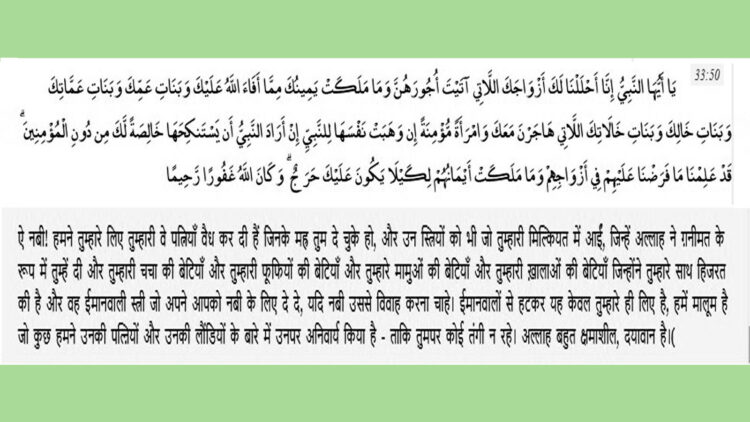 33:50
يَا أَيُّهَا النَّبِيُّ إِنَّا أَحْلَلْنَا لَكَ أَزْوَاجَكَ اللَّاتِي آتَيْتَ أُجُورَهُنَّ وَمَا مَلَكَتْ يَمِينُكَ مِمَّا أَفَاءَ اللَّهُ عَلَيْكَ وَبَنَاتِ عَمِّكَ وَبَنَاتِ عَمَّاتِكَ
وَبَنَاتِ خَالِكَ وَبَنَاتِ خَالَاتِكَ اللَّاتِي هَاجَرْنَ مَعَكَ وَامْرَأَةً مُّؤْمِنَةً إِن وَهَبَتْ نَفْسَهَا لِلنَّبِيِّ إِنْ أَرَادَ النَّبِيُّ أَن يَسْتَنكِحَهَا خَالِصَةً لَّكَ مِن دُونِ الْمُؤْمِنِينَ ۗ
قَدْ عَلِمْنَا مَا فَرَضْنَا عَلَيْهِمْ فِي أَزْوَاجِهِمْ وَمَا مَلَكَتْ أَيْمَانُهُمْ لِكَيْلَا يَكُونَ عَلَيْكَ حَرَجٌ ۗ وَكَانَ اللَّهُ غَفُورًا رَّحِيمًا
ऐ नबी! हमने तुम्हारे लिए तुम्हारी वे पत्नियाँ वैध कर दी हैं जिनके मह्र तुम दे चुके हो, और उन स्त्रियों को भी जो तुम्हारी मिल्कियत में आईं, जिन्हें अल्लाह ने ग़नीमत के
रूप में तुम्हें दी और तुम्हारी चचा की बेटियाँ और तुम्हारी फूफियों की बेटियाँ और तुम्हारे मामुओं की बेटियाँ और तुम्हारी ख़ालाओं की बेटियाँ जिन्होंने तुम्हारे साथ हिजरत
की है और वह ईमानवाली स्त्री जो अपने आपको नबी के लिए दे दे, यदि नबी उससे विवाह करना चाहे। ईमानवालों से हटकर यह केवल तुम्हारे ही लिए है, हमें मालूम है
जो कुछ हमने उनकी पत्नियों और उनकी लौंडियों के बारे में उनपर अनिवार्य किया है - ताकि तुमपर कोई तंगी न रहे। अल्लाह बहुत क्षमाशील, दयावान है।(